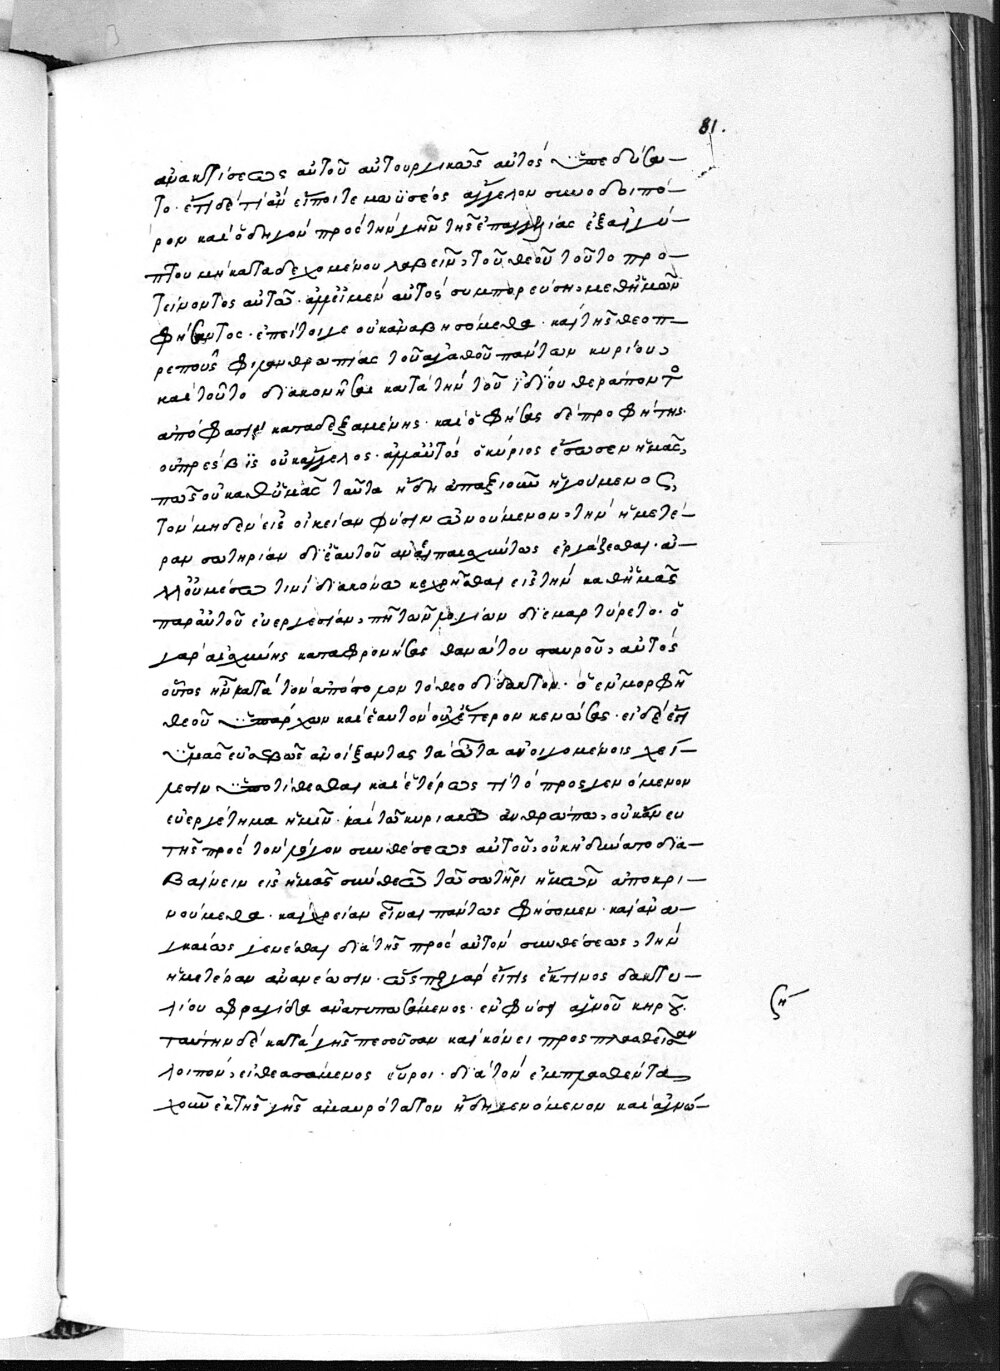 81.
ἀνακτίσεως αὐτοῦ αὐτουργικῶς αὐτὸς ὑπεδύσα-
το· ἐπὶ δὲ τί ἂν εἴποιτε μωϋσέος ἄγγελον συνοδοιπό-
ρον καὶ ὁδηγὸν πρὸς τὴν γῆν τῆς ἐπαγγελίας ἐξ αἰγύ-
πτου μὴ καταδεχομένου λαβεῖν, τοῦ θεοῦ τοῦτο προ-
τείνοντος αὐτῶ· ἀλλ' εἰ μὲν αὐτὸς συμπορεύση, μεθ' ἡμῶν
φήσαντος· ἐπεί τοι γε οὐκ ἀναβησόμεθα· καὶ τῆς θεοπ-
ρεποῦς φιλανθρωπίας τοῦ ἀγαθοῦ πάντων κυρίου,
καὶ τοῦτο διακονῆσαι κατὰ τὴν τοῦ ἰδίου θεράποντος
ἀπόφασιν καταδεξαμένης· καὶ ὁ φήσας δὲ προφήτης·
οὐ πρέσβϊς οὐκ ἄγγελος· ἀλλ' αὐτὸς ὁ κύριος ἔσωσεν ἡμᾶς,
πῶς οὐ καθ' ὑμᾶς ταῦτα ἤδη ἀπαξιοῖ ἡγούμενος,
τὸν μηδὲν εἰς οἰκείαν φύσιν ὠνούμενον, τὴν ἡμετέ-
ραν σωτηρίαν δι' ἑαυτοῦ ἀνεπαισχύντως ἐργάζεσθαι· ἀ-
λλ' οὐ μέσω τινὶ διακόνω κεχρῆσθαι εἰς τὴν καθ' ἡμᾶς
παρ' αὐτοῦ εὐεργεσίαν, πῆ τῶν λογίων διεμαρτύρετο· ὁ
γὰρ αἰσχύνης καταφρονήσας θανάτου σταυροῦ, αὐτὸς
οὗτος ἦν κατὰ τὸν ἀπόστολον τὸ θεοδίδακτον· ὁ ἐν μορφῆ
θεοῦ ὑπάρχων καὶ ἑαυτὸν οὐχ ἕτερον κενώσας· εἰ δέ ἐστι
ὑμᾶς εὐσεβῶς ἀνοίξαντας τὰ ὦτα ἀνοιγομένοις χεί-
λεσιν ὑποτίθεσθαι καὶ ἑτέρως τί τὸ προσγενόμενον
εὐεργέτημα ἡμῖν· καὶ τῶ κυριακῶ ἀνθρώπω, οὐκ ἄνευ
τῆς πρὸς τὸν λόγον συνθέσεως αὐτοῦ, οὐκ ἠδύνατο δια-
βαίνειν εἰς ἡμᾶς σὺν θεῶ τῶ σωτῆρι ἡμῶν ἀποκρι-
νούμεθα· καὶ χρείαν εἶναι πάντως φήσομεν· καὶ ἀνα-
γκαίως γενέσθαι διὰ τῆς πρὸς αὐτὸν συνθέσεως, τὴν
ἡμετέραν ἀνανέωσιν· ὥσπερ γὰρ εἴ τις ἔκ τινος δακτυ-
λίου σφραγίδα ἀνατυπωσάμενος· ἐν φύσει ἁγνοῦ κηροῦ·
ταύτην δὲ κατὰ γῆς πεσοῦσαν καὶ κόνει προσπλασθεῖσαν
λοιπόν, εἰ θεασάμενος εὕροι· διὰ τὸν ἐμπλασθέντα
χοῦν ἐκ τῆς γῆς ἀμαυρότατον ἤδη γενόμενον καὶ ἀγνώ-